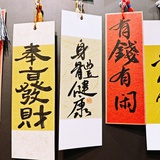 奉旨發財
身體健康
有錢有闲